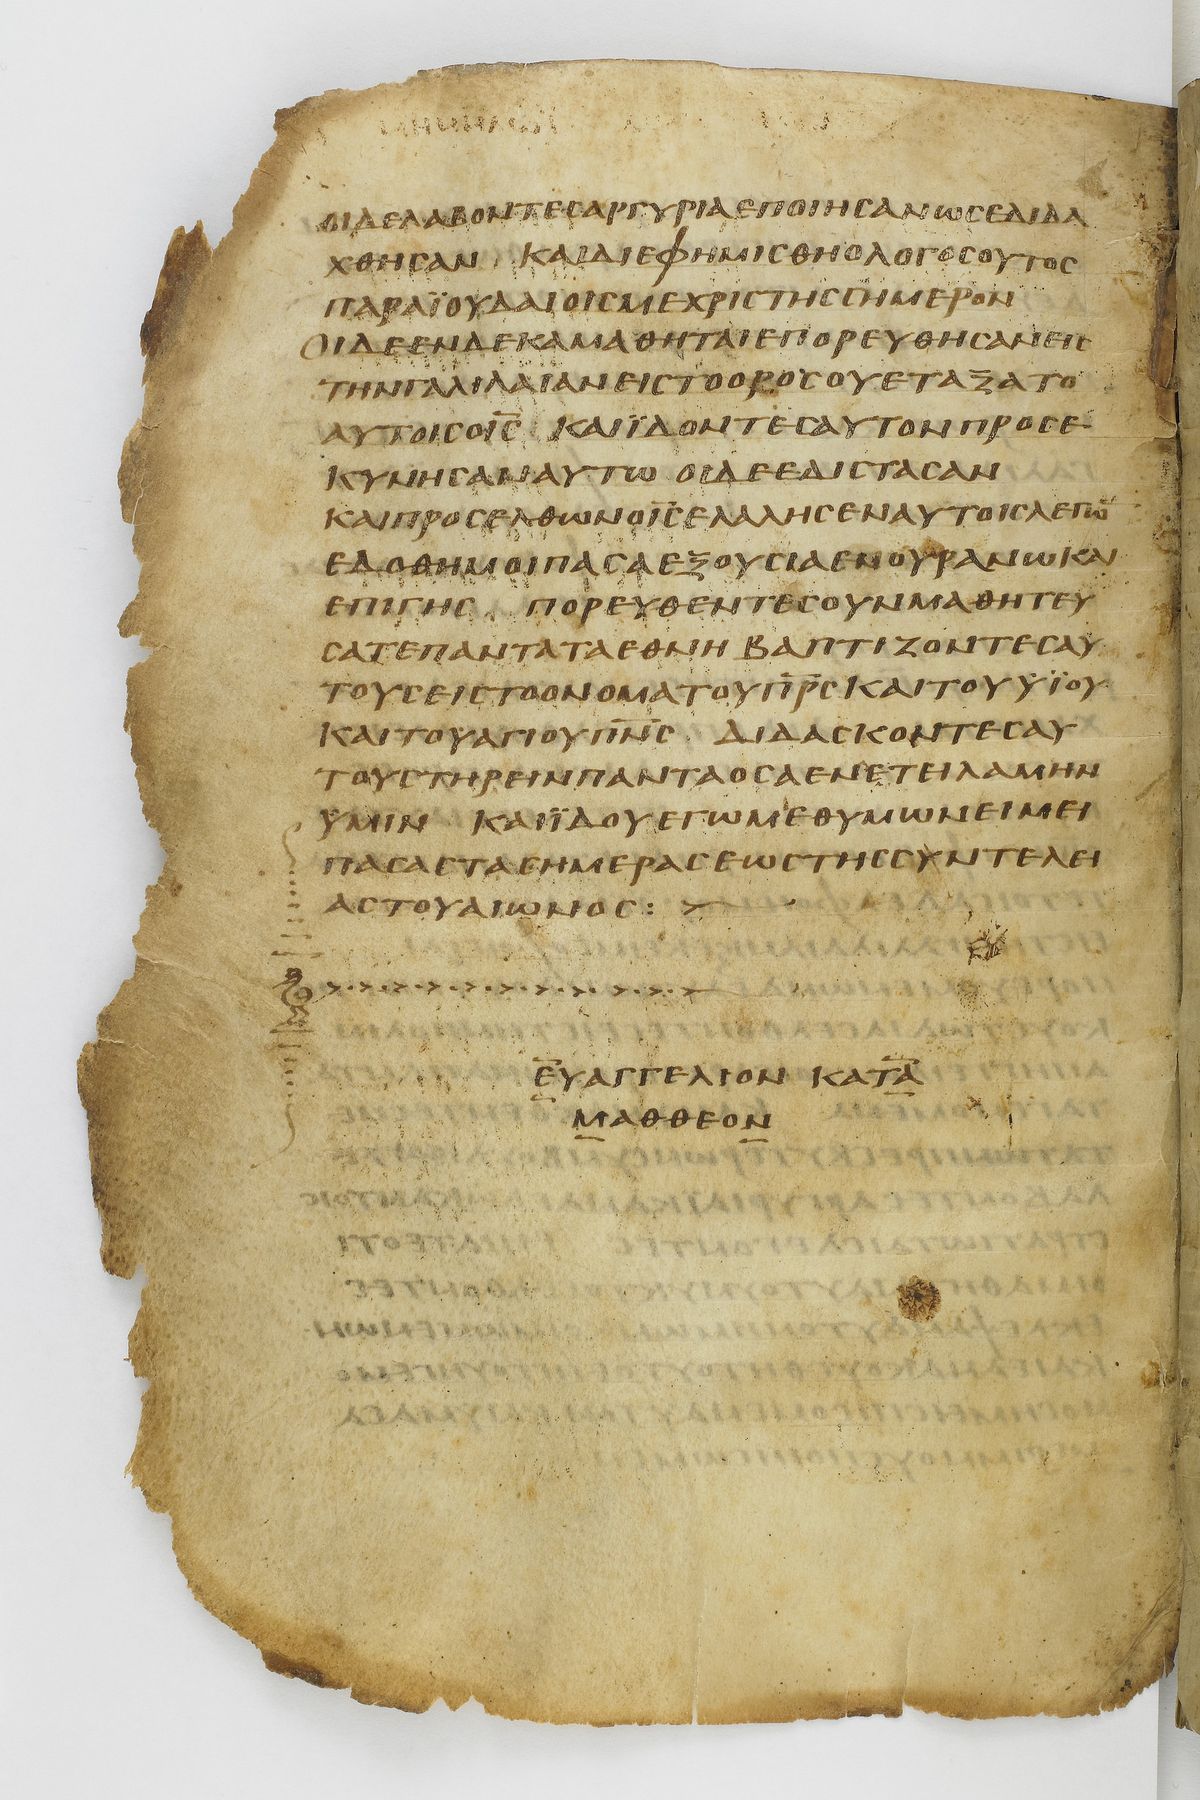 ΟΙΔΕΛΑΒΟΝΤΕΣΑΡΓΥΡΙΑΕΠΟΙΗΣΑΝΩΣΕΔΙΔΑ
ΧΘΗΣΑΝ ΚΑΙΔΙΕΦΗΜΙΣΘΗΟΛΟΓΟΣΟΥΤΟΣ
ΠΑΡΑΪΟΥΔΑΙΟΙΣΜΕΧΡΙΣΤΗΣΣΗΜΕΡΟΝ
ΟΙΔΕΕΝΔΕΚΑΜΑΘΗΤΑΙΕΠΟΡΕΥΘΗΣΑΝΕΙΣ
ΤΗΝΓΑΛΙΛΑΙΑΝΕΙΣΤΟΟΡΟΣΟΥΕΤΑΞΑΤΟ
ΑΥΤΟΙΣΟΙ̅Σ̅ ΚΑΙΪΔΟΝΤΕΣΑΥΤΟΝΠΡΟΣΕ
ΚΥΝΗΣΑΝΑΥΤΩ ΟΙΔΕΕΔΙΣΤΑΣΑΝ
ΚΑΙΠΡΟΣΕΛΘΩΝΟΙ̅Σ̅ΕΛΑΛΗΣΕΝΑΥΤΟΙΣΛΕΓΩ̅
ΕΔΟΘΗΜΟΙΠΑΣΑΕΞΟΥΣΙΑΕΝΟΥΡΑΝΩΚΑΙ
ΕΠΙΓΗΣ ΠΟΡΕΥΘΕΝΤΕΣΟΥΝΜΑΘΗΤΕΥ
ΣΑΤΕΠΑΝΤΑΤΑΕΘΝΗ ΒΑΠΤΙΖΟΝΤΕΣΑΥ
ΤΟΥΣΕΙΣΤΟΟΝΟΜΑΤΟΥΠ̅Ρ̅Σ̅ΚΑΙΤΟΥΫΪΟΥ
ΚΑΙΤΟΥΑΓΙΟΥΠ̅Ν̅Σ̅ ΔΙΔΑΣΚΟΝΤΕΣΑΥ
ΤΟΥΣΤΗΡΕΙΝΠΑΝΤΑΟΣΑΕΝΕΤΕΙΛΑΜΗΝ
ΫΜΙΝ ΚΑΙΪΔΟΥΕΓΩΜΕΘΥΜΩΝΕΙΜΕΙ
ΠΑΣΑΣΤΑΣΗΜΕΡΑΣΕΩΣΤΗΣΣΥΝΤΕΛΕΙ
ΑΣΤΟΥΑΙΩΝΟΣ:
ΕΥΑΓΓΕΛΙΟΝ ΚΑΤΑ
ΜΑΘΘΕΟΝ